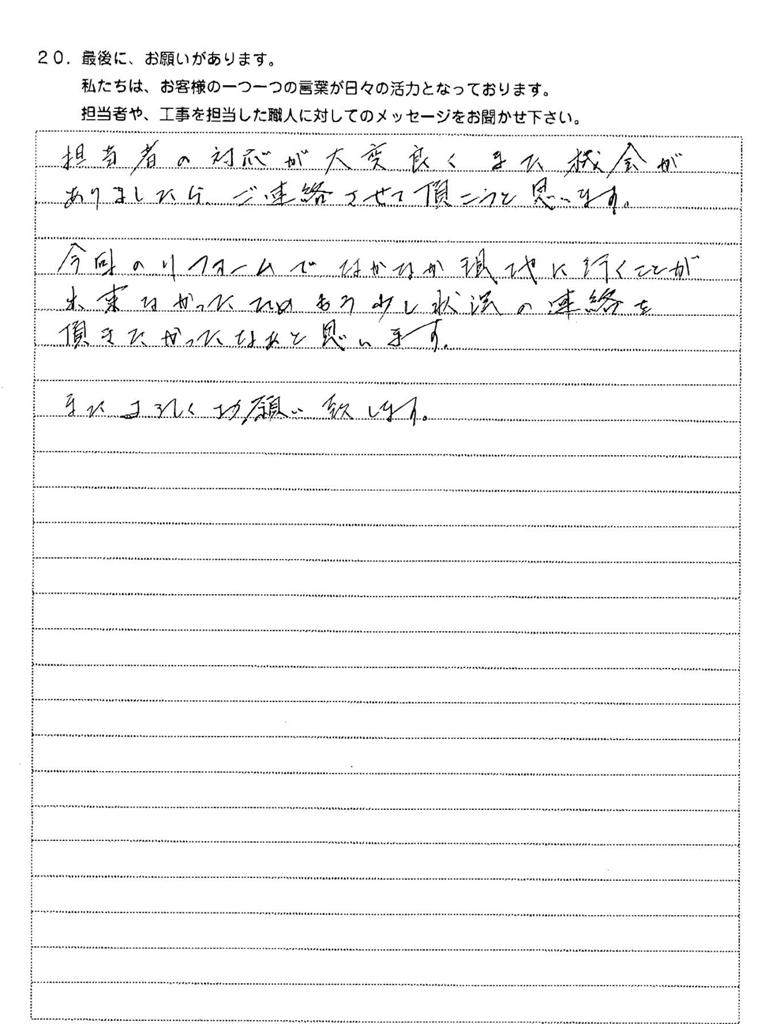 20. 最後に、お願いがあります。
私たちは、お客様の一つ一つの言葉が日々の活力となっております。
担当者や、工事を担当した職人に対してのメッセージをお聞かせ下さい。
担当者の対応が大変良くまた機会が
ありましたら、ご連絡させて頂こうと思います。
今回のリフォームでなかなか現地に行くことが
出来なかったためもう少し状況の連絡を
頂きたかったなぁと思います。
またよろしくお願い致します。